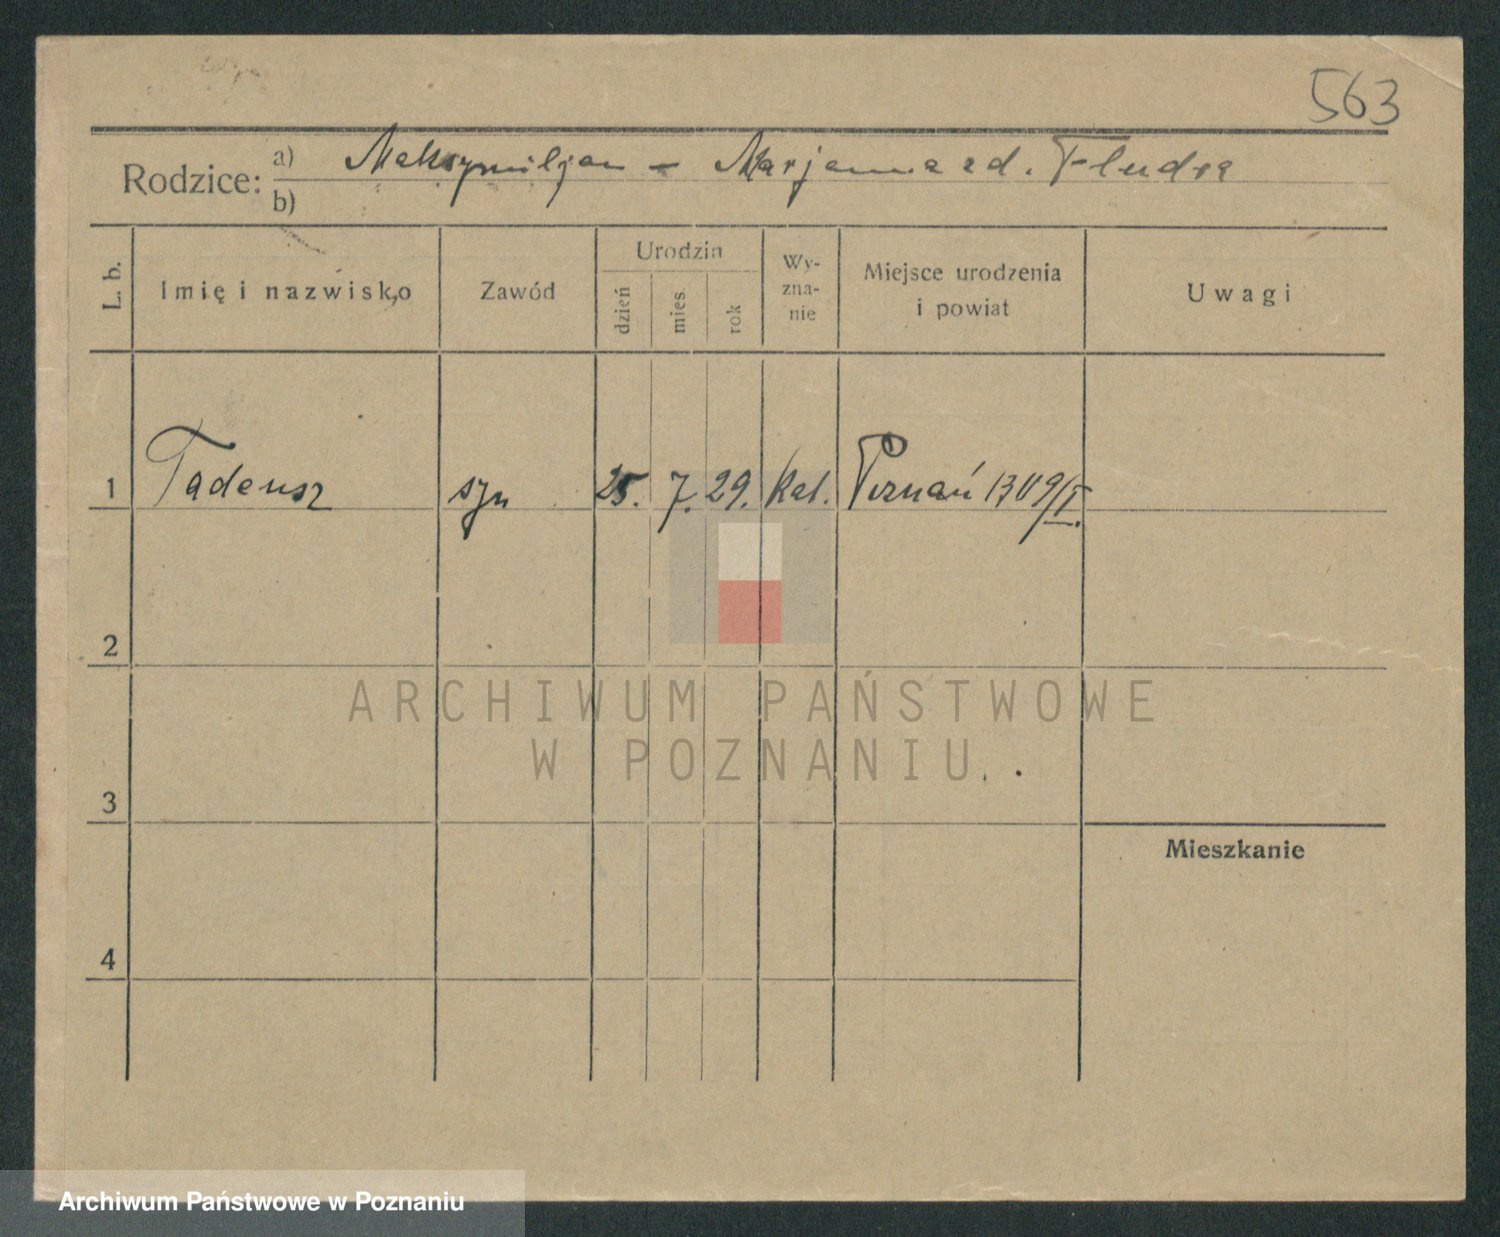 563
Rodzice: a) Maksymiljan – Marjanna zd. Fludra
b)
L. b. Imię i nazwisko Zawód Urodzin dzień mies. rok Wy- zna- nie Miejsce urodzenia i powiat Uwagi
1 Tadeusz syn 25. 7. 29. kat. Poznań
2
3
Mieszkanie
4
ARCHIWUM PAŃSTWOWE
W POZNANIU
Archiwum Państwowe w Poznaniu